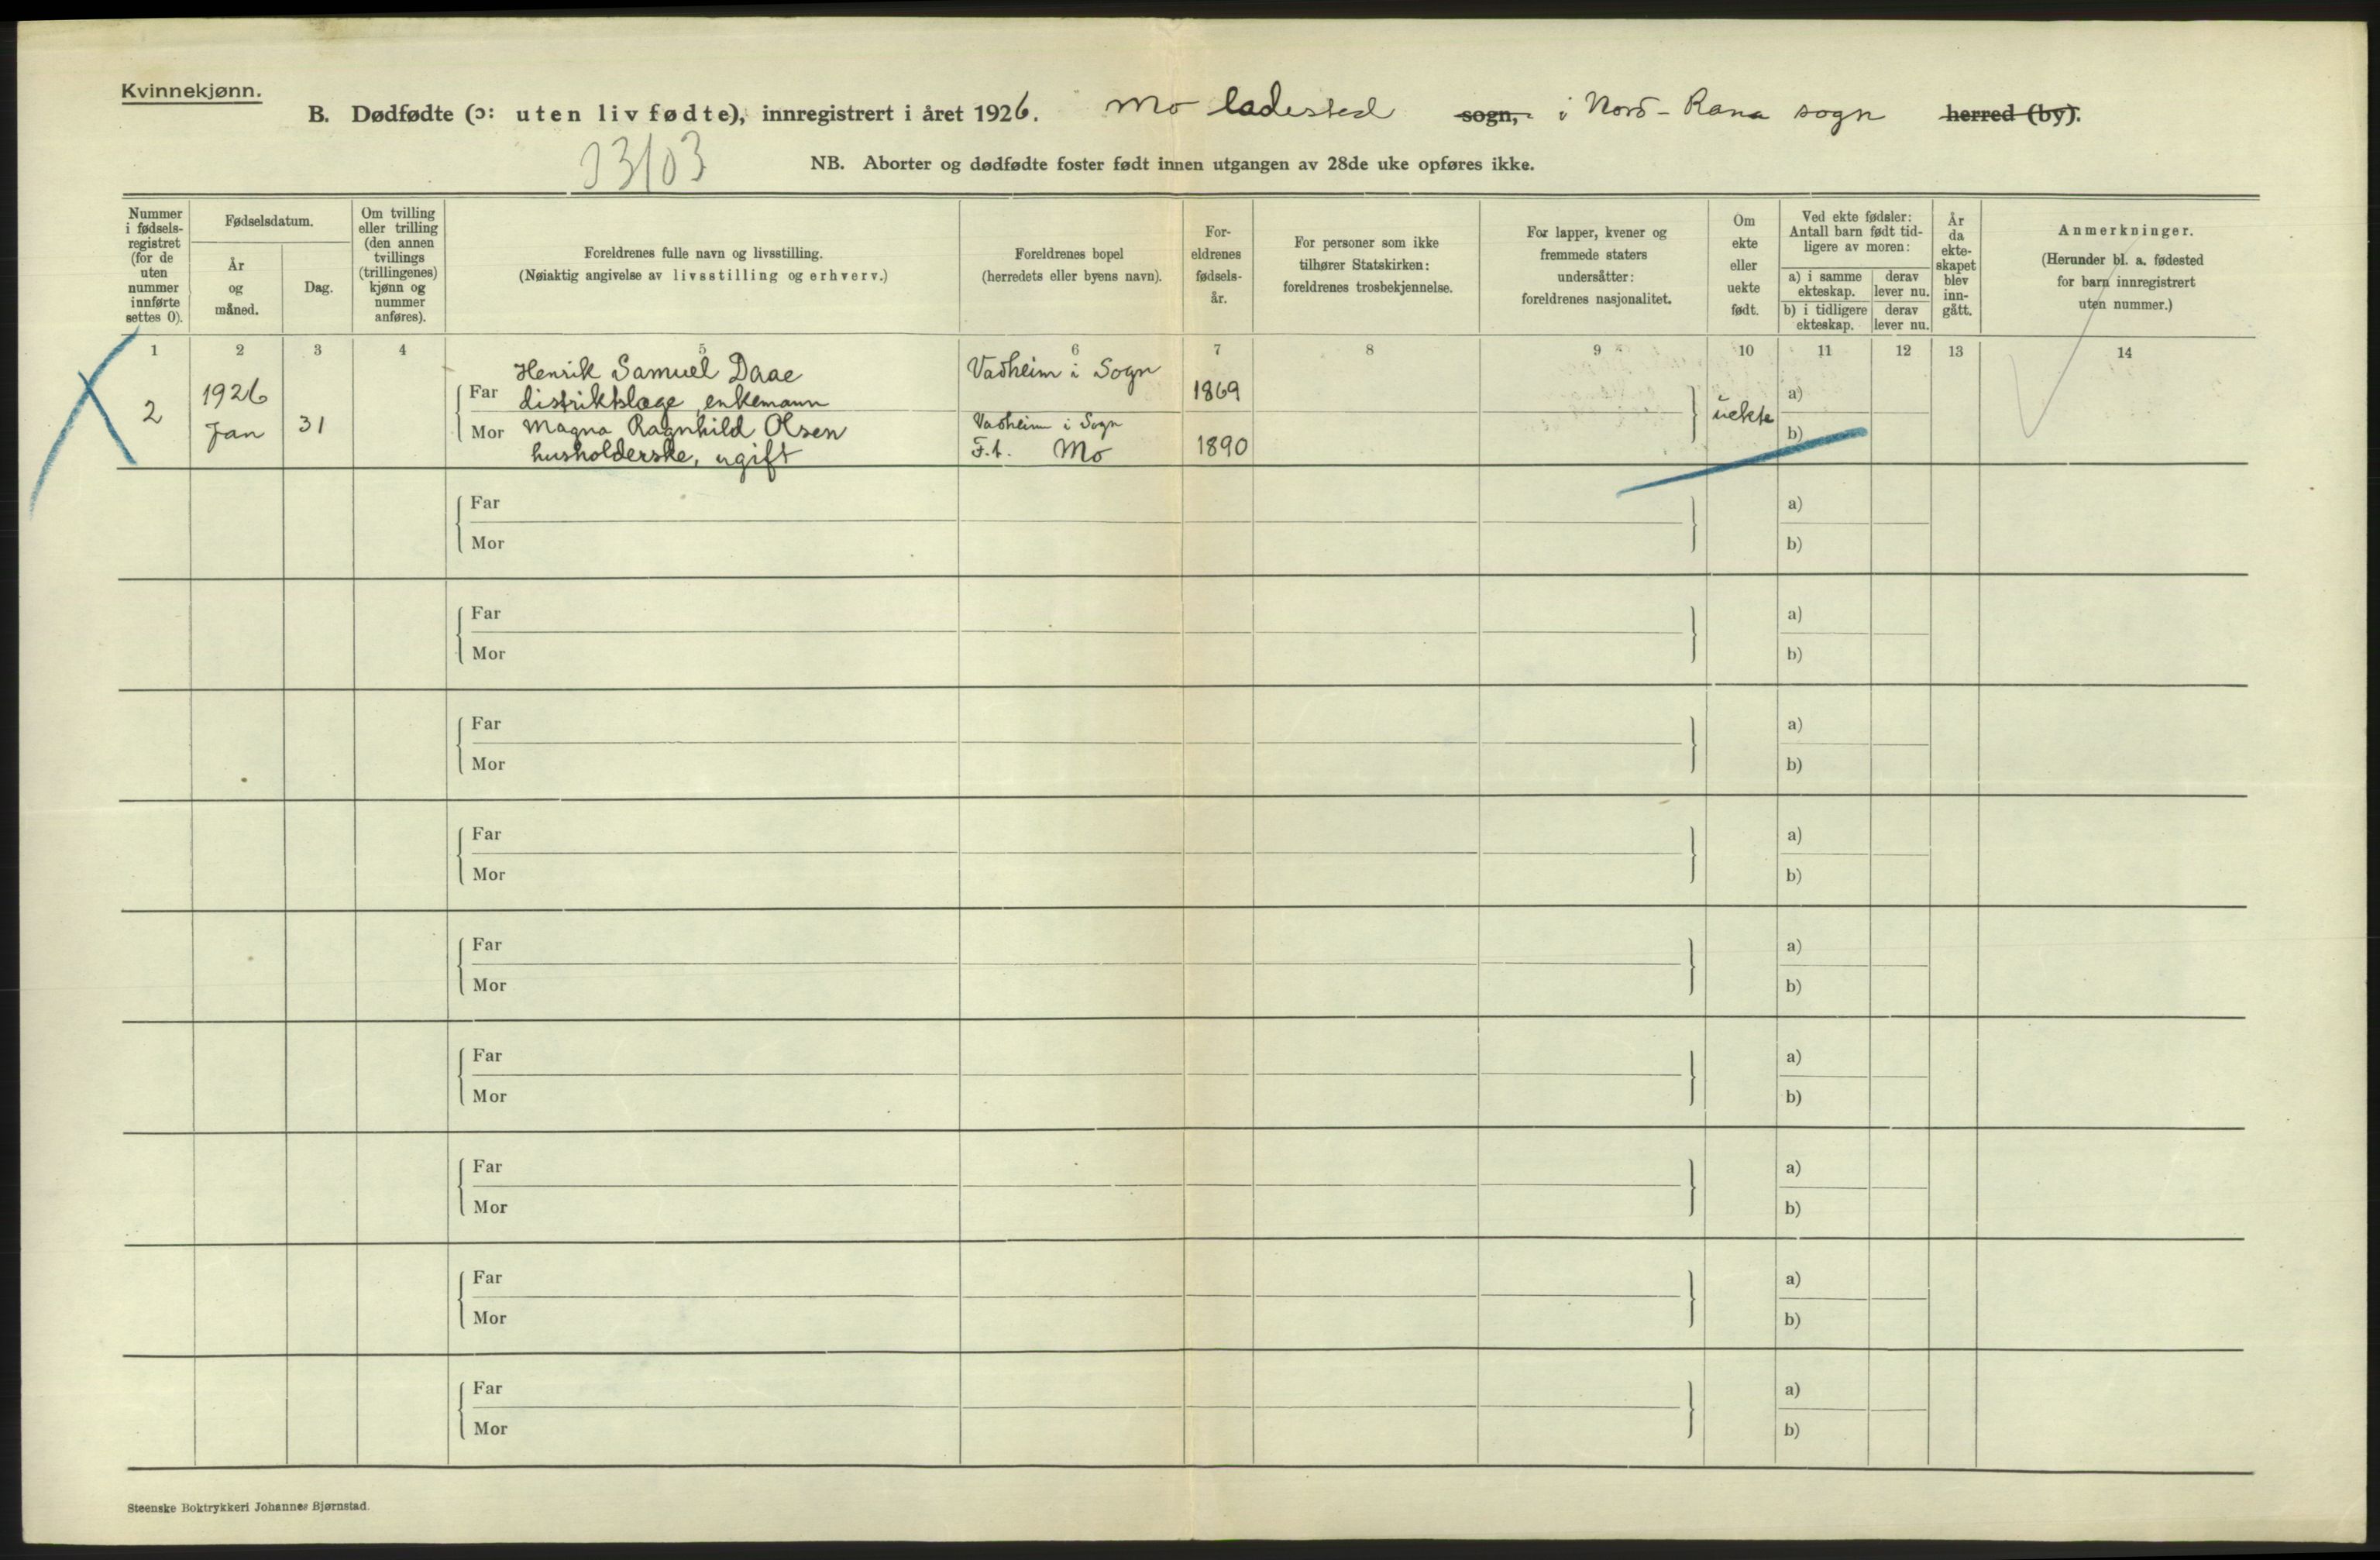 Kvinnekjønn.
B. Dødfødte (ɔ: uten liv fødte), innregistrert i året 1926. Mo ladested sogn, i Nord-Rana sogn herred (by).
NB. Aborter og dødfødte foster født innen utgangen av 28de uke opføres ikke.
Nummer
i fødsels-
registret
(for de
uten
nummer
innførte
settes 0).
Fødselsdatum.
År
og
måned.
Dag.
Om tvilling
eller trilling
(den annen
tvillings
(trillingenes)
kjønn og
nummer
anføres).
Foreldrenes fulle navn og livsstilling.
(Nøiaktig angivelse av livsstilling og erhverv.)
Foreldrenes bopel
(herredets eller byens navn).
For-
eldrenes
fødsels-
år.
For personer som ikke
tilhører Statskirken:
foreldrenes trosbekjennelse.
For lapper, kvener og
fremmede staters
undersåtter:
foreldrenes nasjonalitet.
Om
ekte
eller
uekte
født.
Ved ekte fødsler:
Antall barn født tid-
ligere av moren:
a) i samme
ekteskap.
derav
lever nu.
b) i tidligere
ekteskap.
derav
lever nu.
År
da
ekte-
skapet
blev
inn-
gått.
Anmerkninger.
(Herunder bl. a. fødested
for barn innregistrert
uten nummer.)
1 2 3 4 5 6 7 8 9 10 11 12 13 14
2
1926
Jan
31
Henrik Samuel Daae
Far distriktslæge, enkemann
Mor Magna Ragnhild Olsen
husholderske, ugift
Vadheim i Sogn
Vadheim i Sogn
F.t. Mo
1869
1890
uekte
a)
b)
Far a)
Mor b)
Far a)
Mor b)
Far a)
Mor b)
Far a)
Mor b)
Far a)
Mor b)
Far a)
Mor b)
Far a)
Mor b)
Far a)
Mor b)
Far a)
Mor b)
Steenske Boktrykkeri Johannes Bjørnstad.